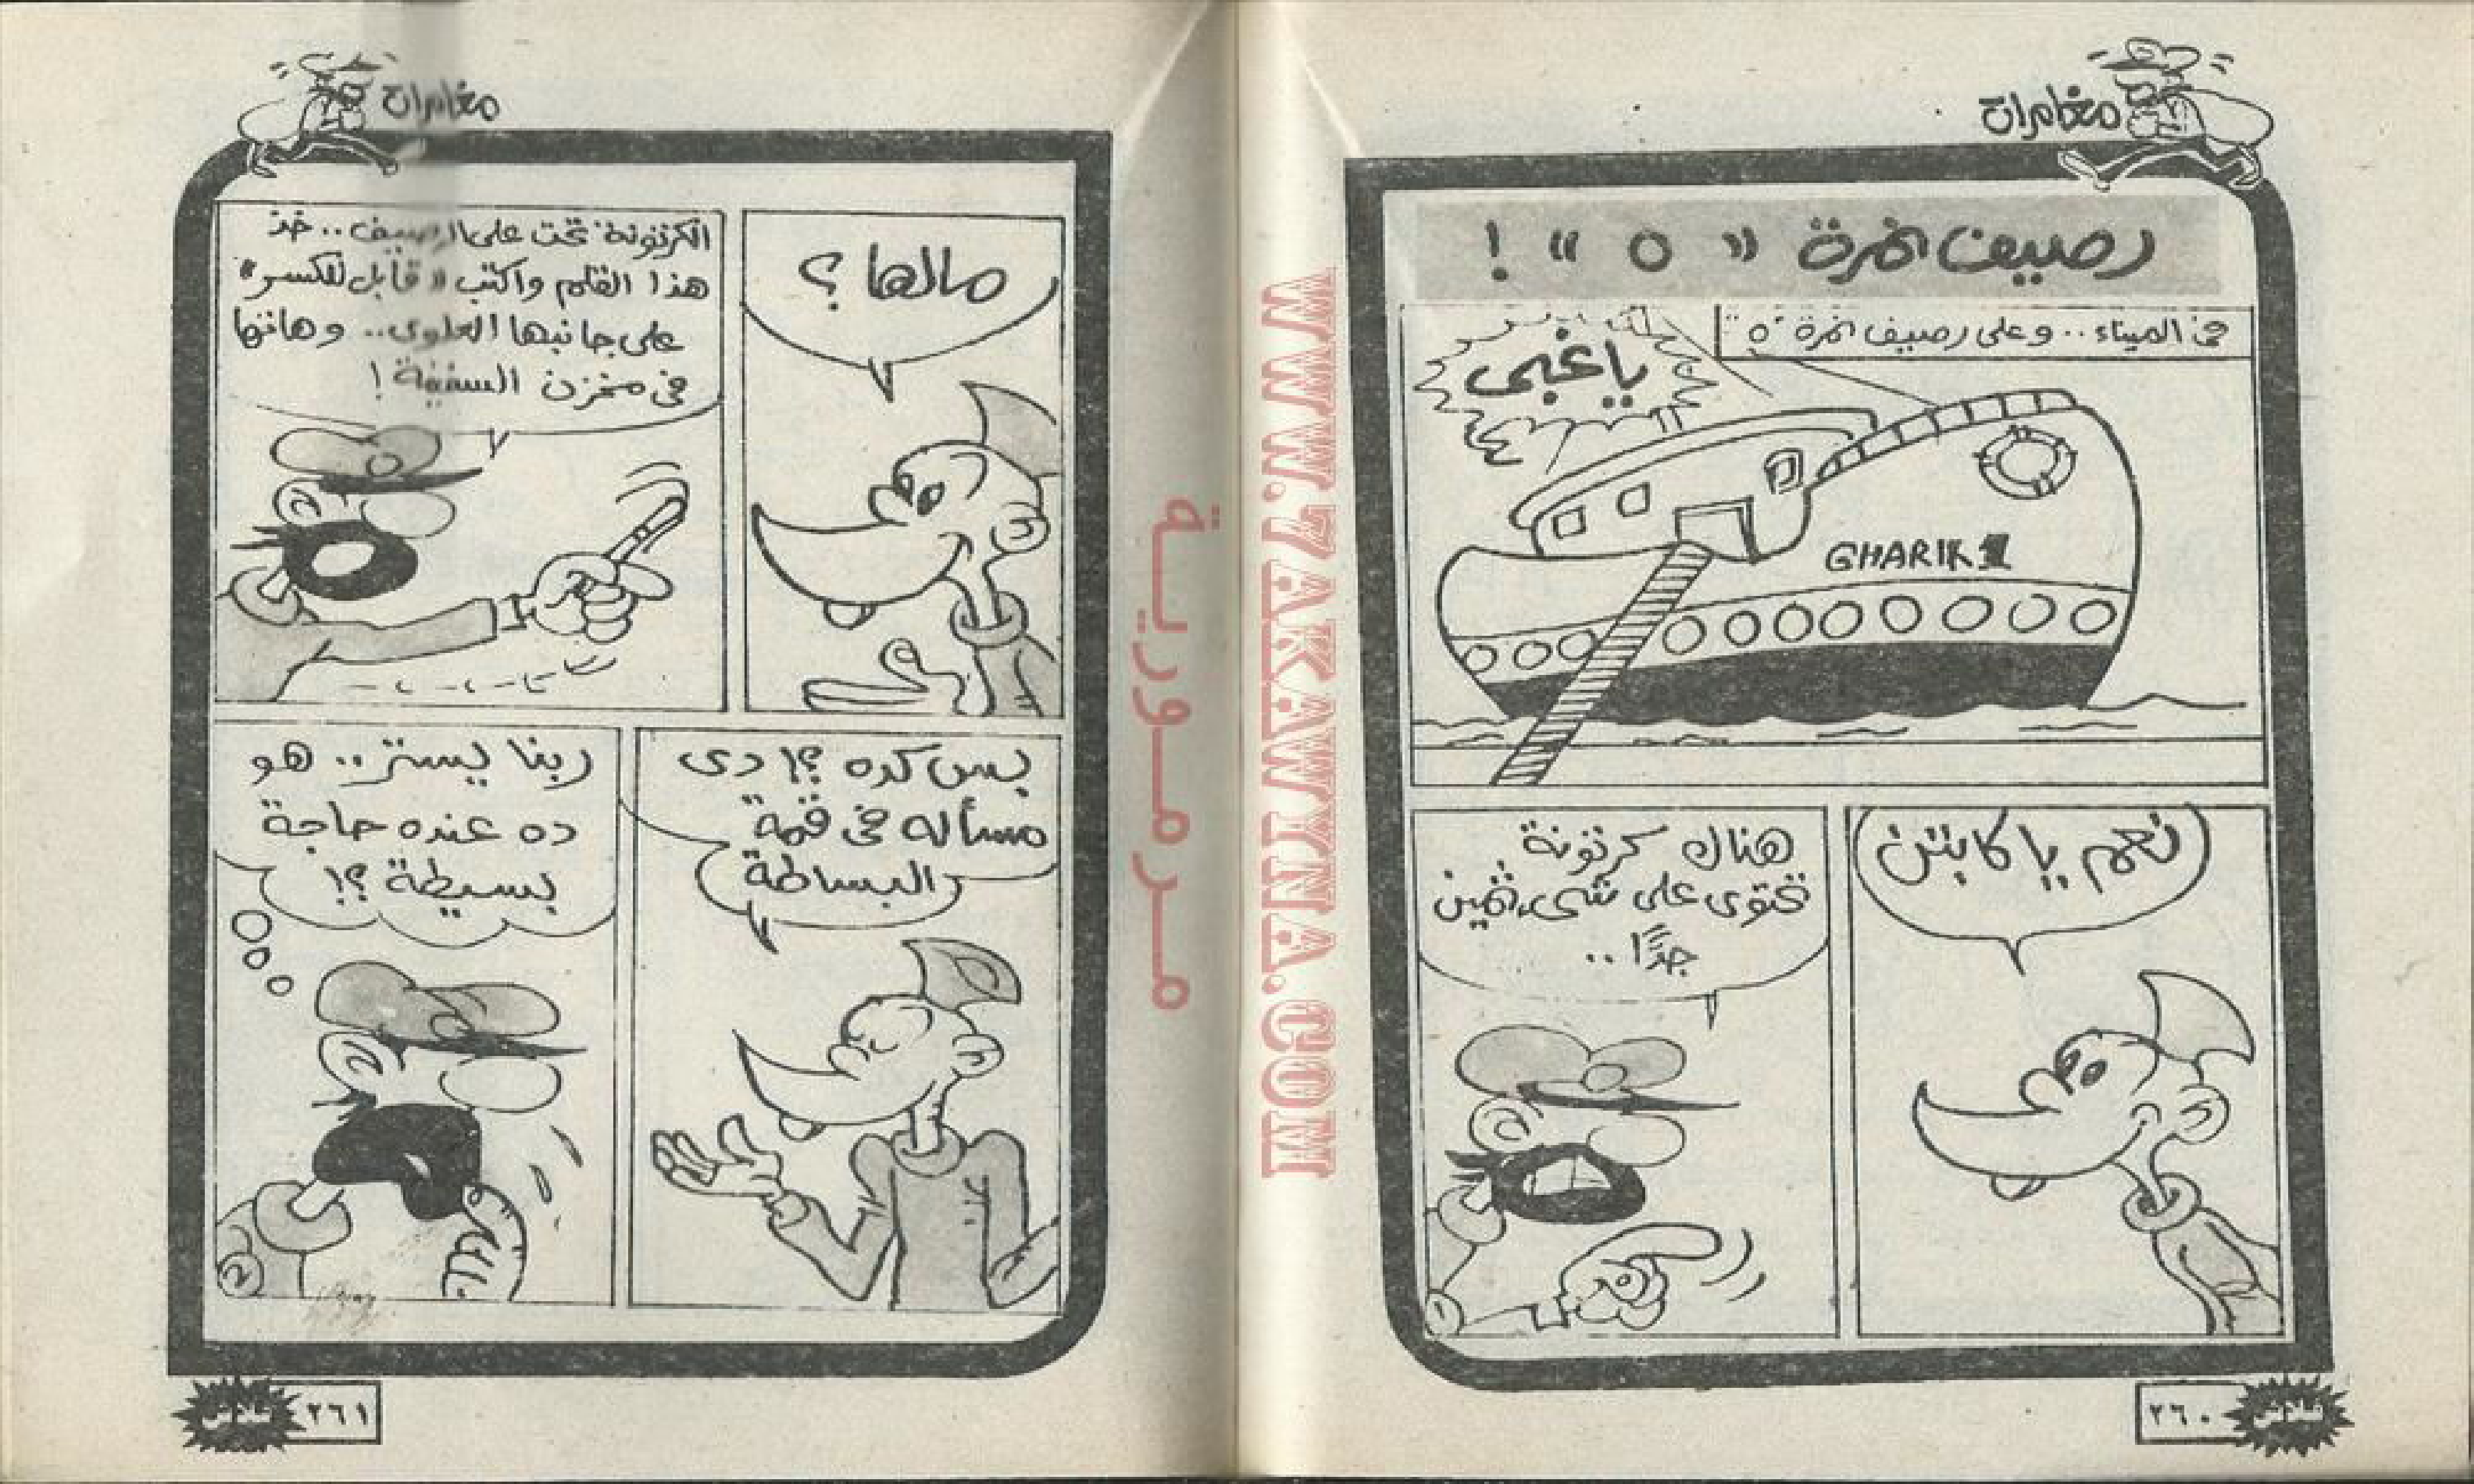 مغامرات
رصيف نمرة « ٥ » !
فى الميناء .. وعلى رصيف نمرة "٥"
ياغبى
GHARIK 1
نعم يا كابتن
هناك كرتونة
تحتوى على شىء ثمين
جدًا ..
٢٦٠
فلاش
مغامرات
مالها ؟
الكرتونة تحت على الرصيف .. خذ
هذا القلم واكتب « قابل للكسر »
على جانبها العلوى .. وهاتها
فى مخزن السفينة !
بس كده ؟! دى
مسأله فى قمة
البساطة
ربنا يستر .. هو
ده عنده حاجة
بسيطة ؟!
٢٦١
فلاش
مرمورية
WWW.7AKAWITNA.COM